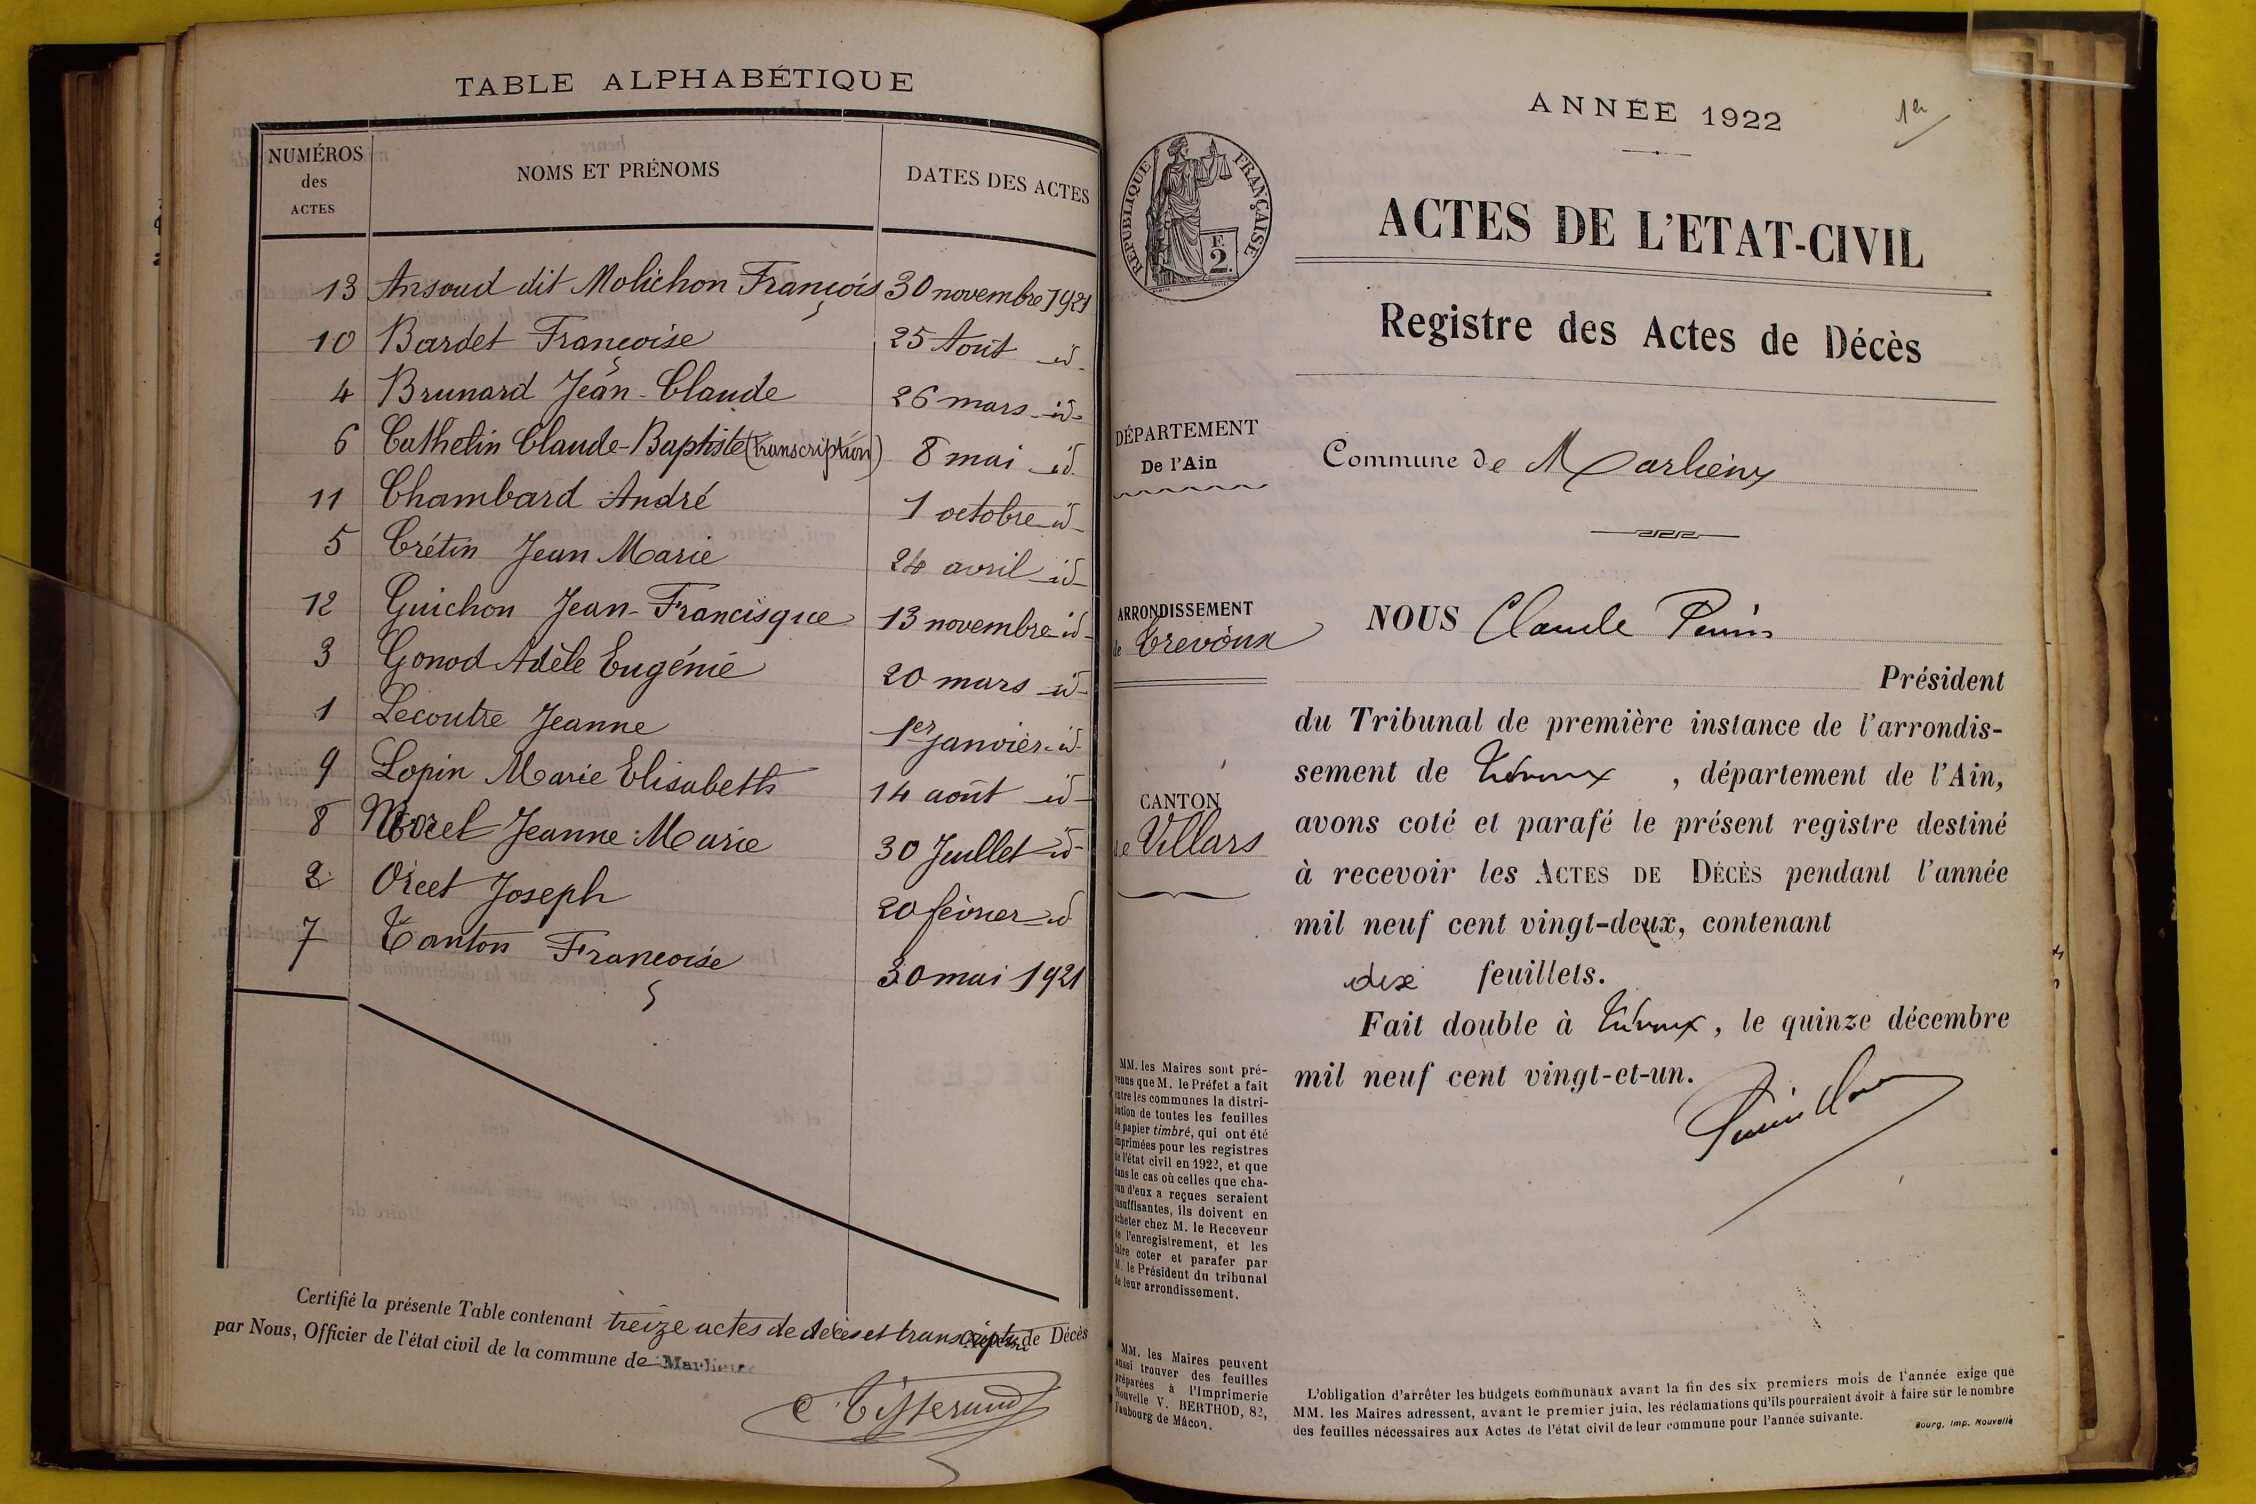 TABLE ALPHABÉTIQUE
NUMÉROS des ACTES NOMS ET PRÉNOMS DATES DES ACTES
13 Ansoud dit Molichon François 30 novembre 1921
10 Bardet Françoise 25 Août id
4 Brunard Jean-Claude 26 mars id
6 Cathelin Claude-Baptiste (transcription) 8 mai id
11 Chambard André 1 octobre id
5 Crétin Jean Marie 24 avril id
12 Guichon Jean-Francisque 13 novembre id
3 Gonod Adèle Eugénie 20 mars id
1 Lecoutre Jeanne 1er janvier id
9 Lopin Marie Elisabeth 14 août id
8 Morel Jeanne Marie 30 Juillet id
2 Orcet Joseph 20 février id
7 Tanton Françoise 30 mai 1921
Certifié la présente Table contenant treize actes de décès et transcripton de Décès
par Nous, Officier de l'état civil de la commune de Marlieux
C Tisserand
ANNÉE 1922
1er
RÉPUBLIQUE FRANÇAISE
F.
2.
ACTES DE L'ETAT-CIVIL
Registre des Actes de Décès
DÉPARTEMENT
De l'Ain
Commune de Marlieux
ARRONDISSEMENT
de Trevoux
CANTON
de Villars
NOUS Claude
Président
du Tribunal de première instance de l'arrondis-
sement de Trévoux, département de l'Ain,
avons coté et parafé le présent registre destiné
à recevoir les ACTES DE DÉCÈS pendant l'année
mil neuf cent vingt-deux, contenant
dix feuillets.
Fait double à Trévoux, le quinze décembre
mil neuf cent vingt-et-un.
MM. les Maires sont pré-
venus que M. le Préfet a fait
entre les communes la distri-
bution de toutes les feuilles
de papier timbré, qui ont été
imprimées pour les registres
de l'état civil en 1922, et que
dans le cas où celles que cha-
cun d'eux a reçues seraient
insuffisantes, ils doivent en
acheter chez M. le Receveur
de l'enregistrement, et les
faire coter et parafer par
M. le Président du tribunal
de leur arrondissement.
MM. les Maires peuvent
aussi trouver des feuilles
préparées à l'Imprimerie
Nouvelle V. BERTHOD, 82,
Faubourg de Mâcon.
L'obligation d'arrêter les budgets communaux avant la fin des six premiers mois de l'année exige que
MM. les Maires adressent, avant le premier juin, les réclamations qu'ils pourraient avoir à faire sur le nombre
des feuilles nécessaires aux Actes de l'état civil de leur commune pour l'année suivante.
Bourg, Imp. Nouvelle